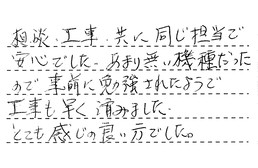 相談、工事、共に同じ担当で
安心でした。あまり無い機種だった
ので事前に勉強されたようで
工事も早く済みました。
とても感じの良い方でした。